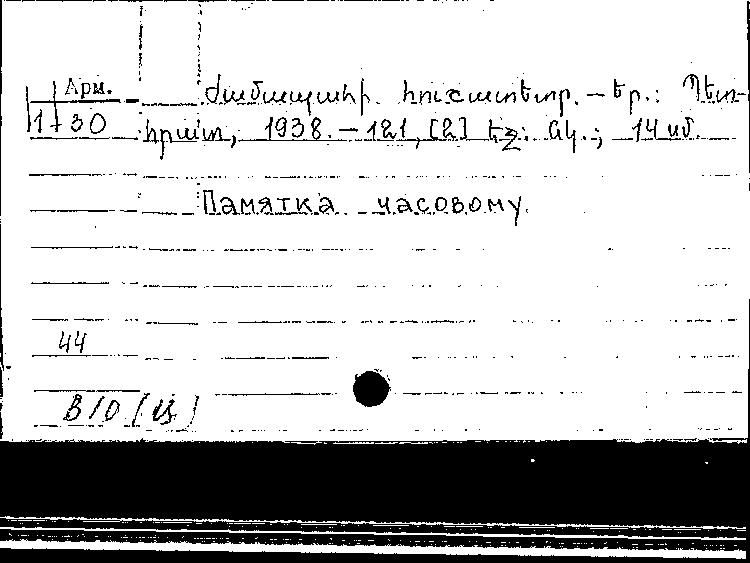 Арм.
1-30
Ժամապահի հուշատետր. — Եր.: Պետ-
հրատ, 1938. — 121, [2] էջ: նկ.; 14 սմ.
Памятка часового.
44
В/О (